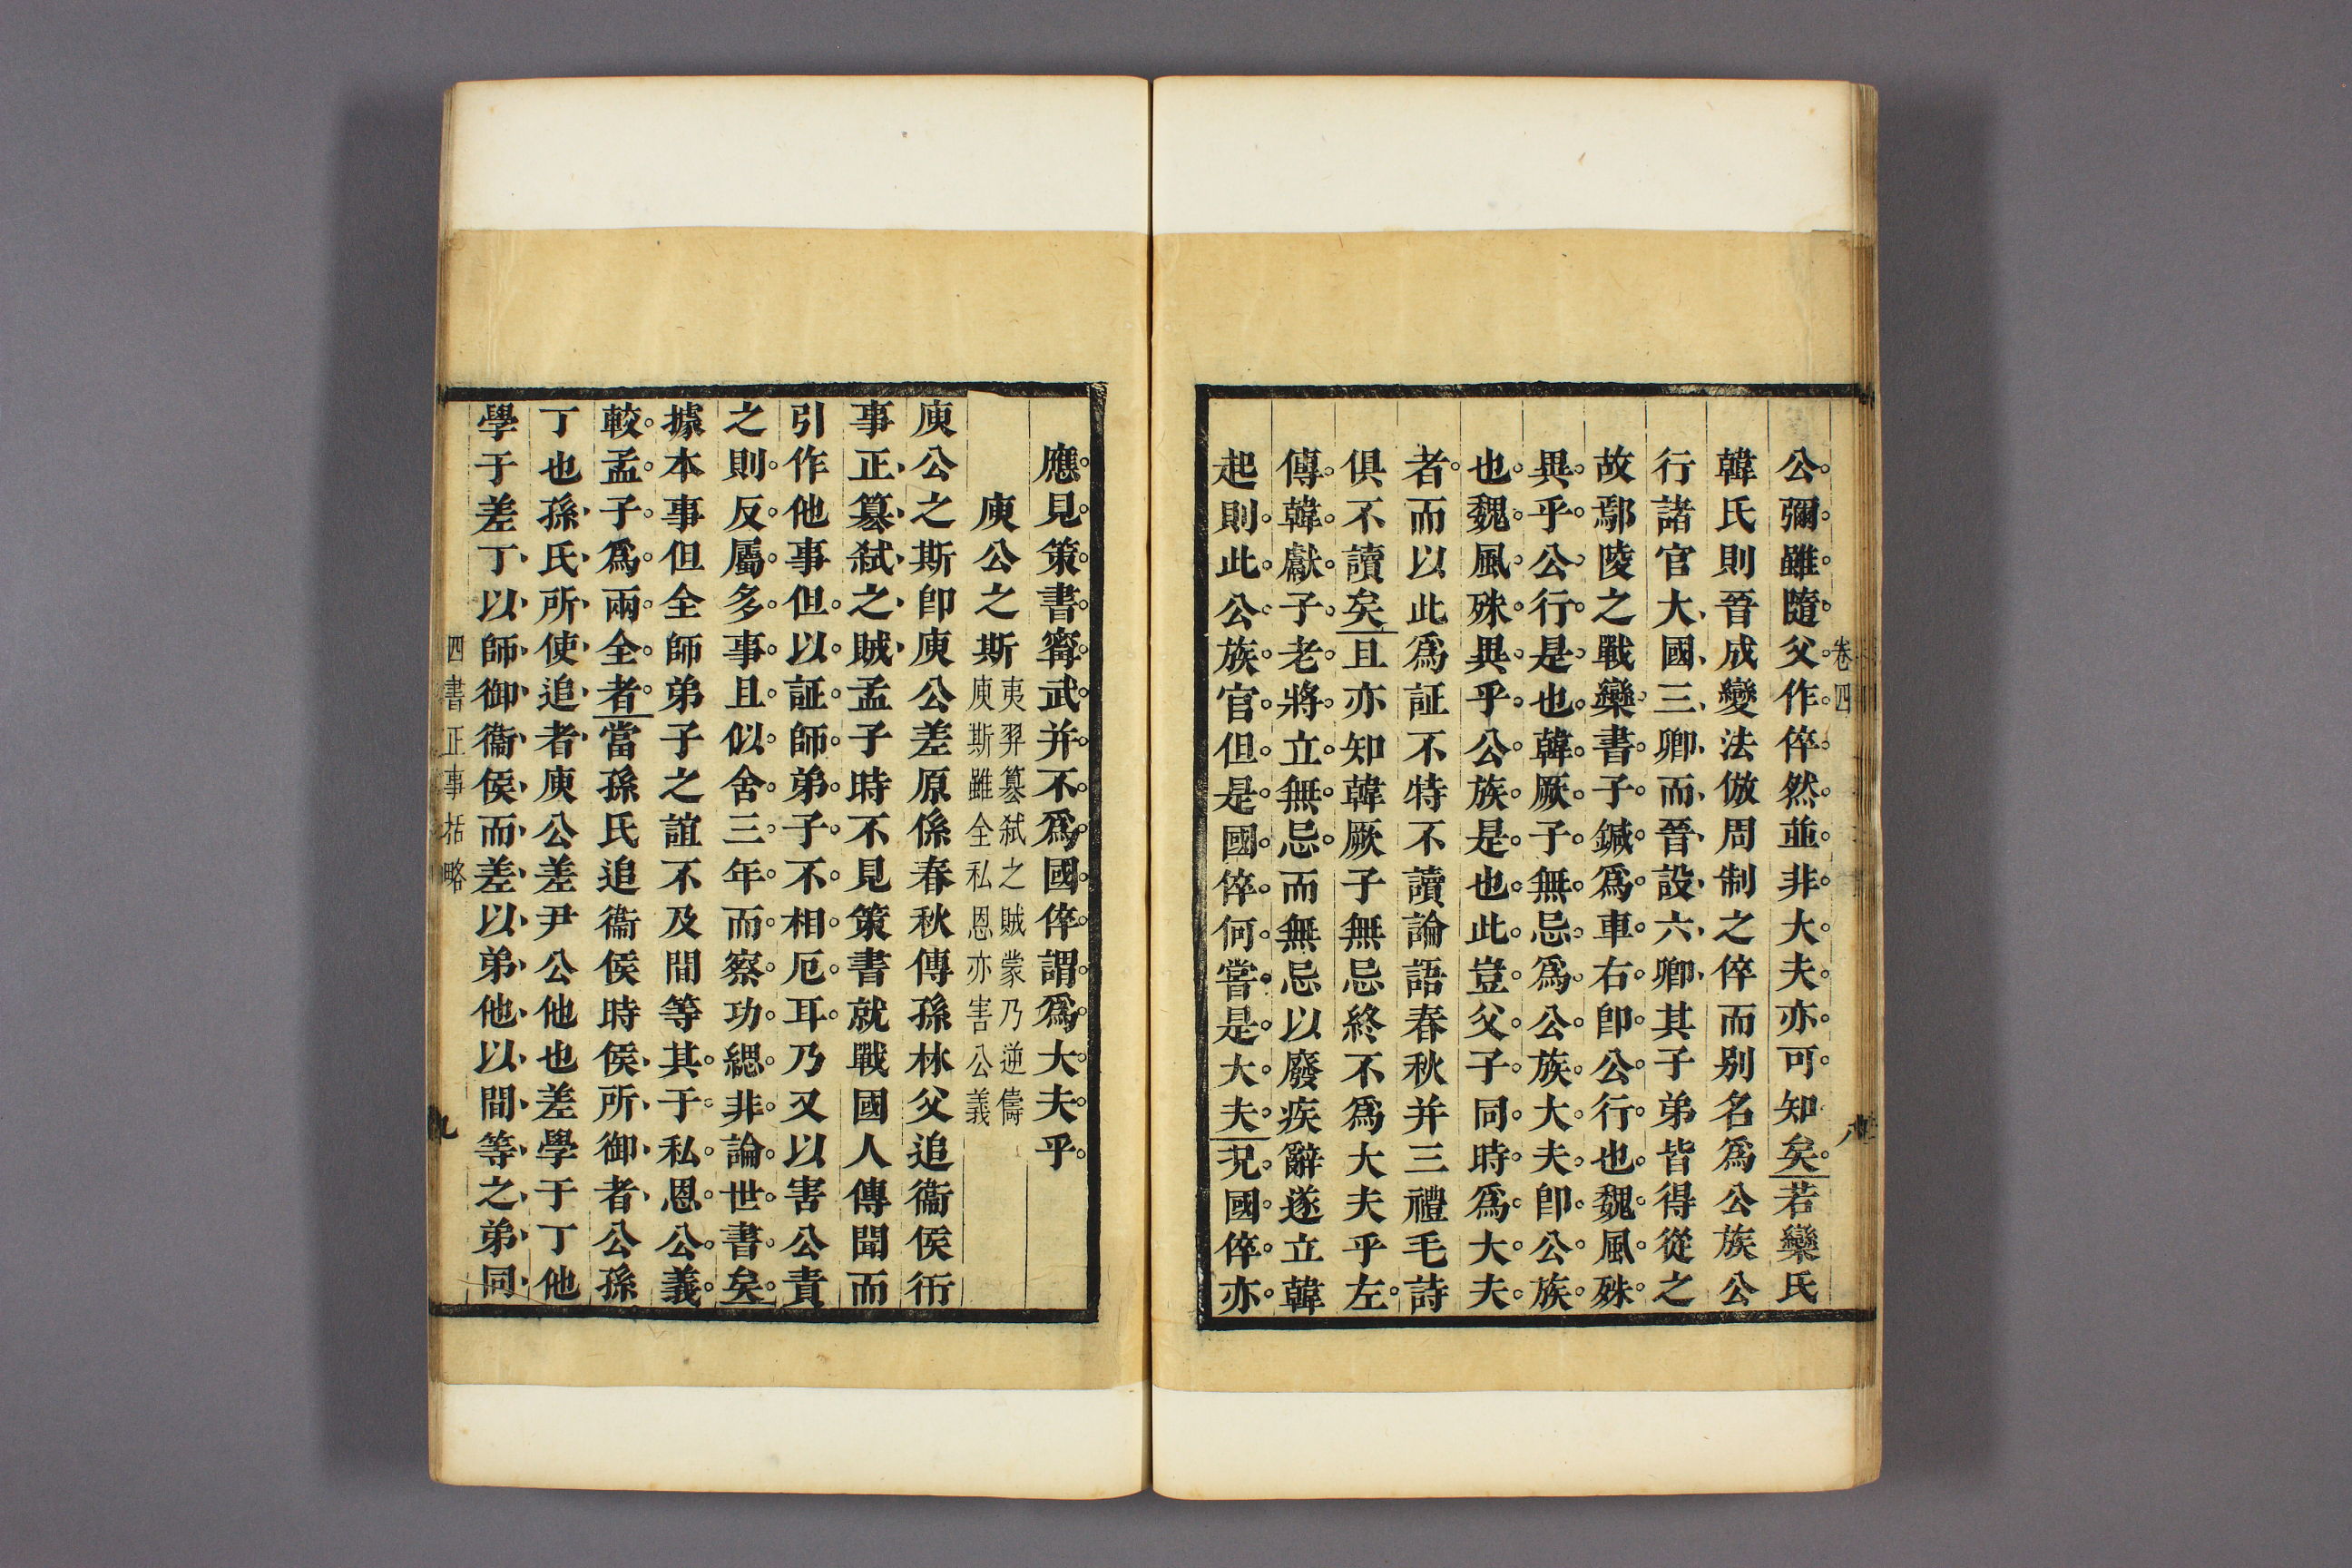 卷四
八
公彌雖隨父作倅然並非大夫亦可知矣若欒氏
韓氏則晉成變法倣周制之倅而别名爲公族公
行諸官大國三卿而晉設六卿其子弟皆得從之
故鄢陵之戰欒書子鍼爲車右卽公行也魏風殊
異乎公行是也韓厥子無忌爲公族大夫卽公族
也魏風殊異乎公族是也此豈父子同時爲大夫
者而以此爲証不特不讀論語春秋并三禮毛詩
俱不讀矣且亦知韓厥子無忌終不爲大夫乎左
傳韓獻子老將立無忌而無忌以廢疾辭遂立韓
起則此公族官但是國倅何嘗是大夫況國倅亦
應見策書甯武并不爲國倅謂爲大夫乎
庾公之斯
夷羿篡弑之賊蒙乃逆儔
庾斯雖全私恩亦害公義
庾公之斯卽庾公差原係春秋傳孫林父追衞侯衎
事正篡弑之賊孟子時不見策書就戰國人傳聞而
引作他事但以証師弟子不相厄耳乃又以害公責
之則反屬多事且似舍三年而察功緦非論世書矣
據本事但全師弟子之誼不及間等其于私恩公義
較孟子爲兩全者當孫氏追衞侯時侯所御者公孫
丁也孫氏所使追者庾公差尹公他也差學于丁他
學于差丁以師御衞侯而差以弟他以間等之弟同
四書正事括略
九